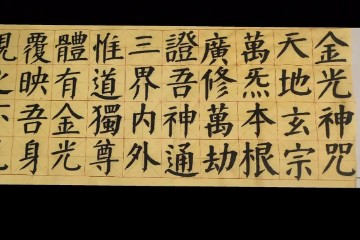 金光神咒
天地玄宗
萬炁本根
廣修萬劫
證吾神通
三界內外
惟道獨尊
體有金光
覆映吾身